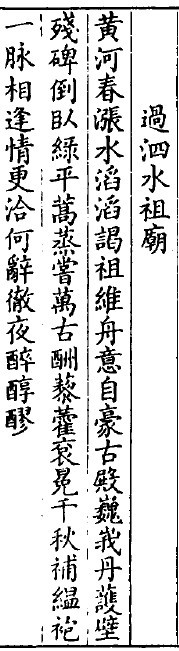 過泗水祖廟
黄河春漲水滔滔謁祖維舟意自豪古殿巍峩丹䕶壁
殘碑倒臥綠平蒿蒸嘗萬古酬藜藿袞冕千秋補緼袍
一脉相逢情更洽何辭徹夜醉醇醪